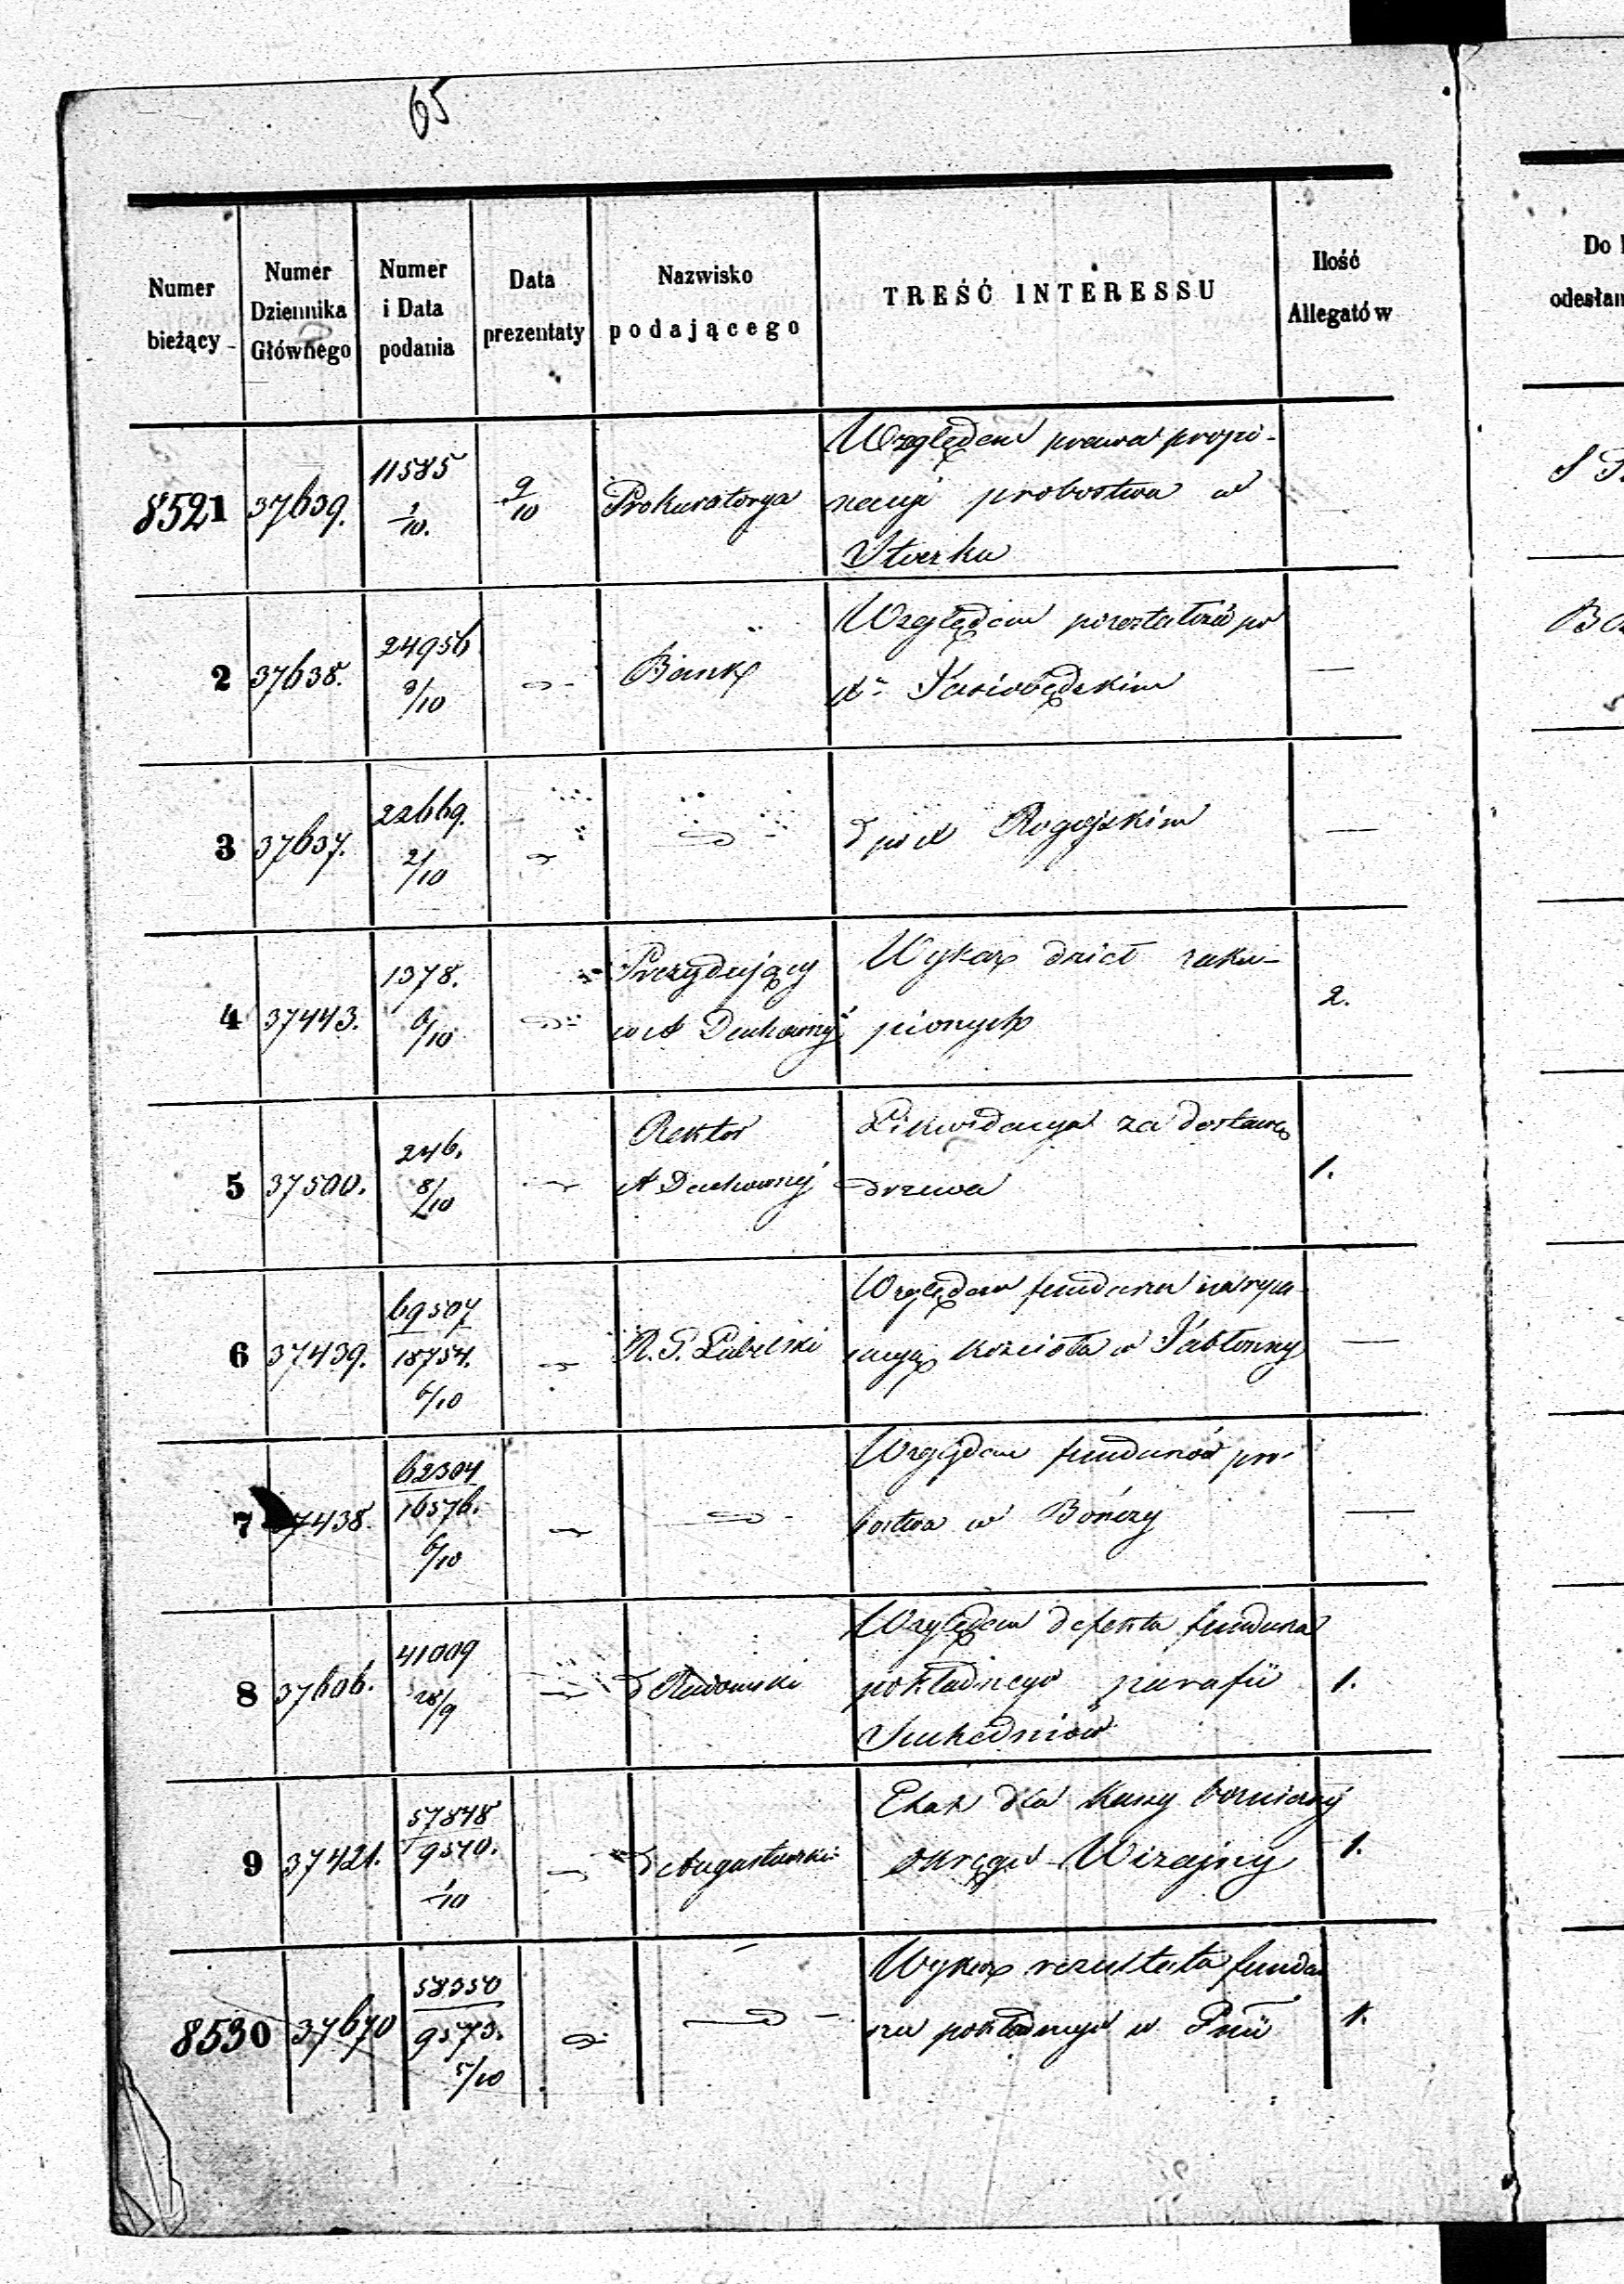 65
Numer bieżący
Numer Dziennika Głównego
Numer i Data podania
Data prezentaty
Nazwisko podającego
TREŚĆ INTERESSU
Ilość Allegatów
Do
odesłan
8521 37639. 11585 1/10. 9/10 Prokuratorya
Względem prawa propi-
nacyi probostwa w
2 37638. 24956 3/10 Bank —
Względem pozostałości po
3 37637. 22669. 2/10 —
d po X Rogojskim
4 37443. 1378. 6/10 2.
Prezydujący
w A Duchownej
Wykaz dzieł zaku-
pionych
5 37500. 246. 8/10 1.
Rektor
A Duchownej
Likwidacya za dostawę
drzewa
6 37439. 69507 18754. 6/10 R. G. Lubelski —
Względem funduszu na repa-
racyę kościoła w Jabłonny
7 37438. 62304 16576. 6/10 —
Względem funduszów pro-
bostwa w Bończy
8 37606. 41009 28/9 d Radomski 1.
Względem defektu funduszu
pokładnego parafii
Suchedniów
9 37421. 57848 9540. 1/10 d Augustowski 1.
Etat dla kassy bożniczej
okręgu Wizajny
8530 37670 58350 9573. 5/10 1.
Wykaz rezultatu fundu
szu pokładnego w